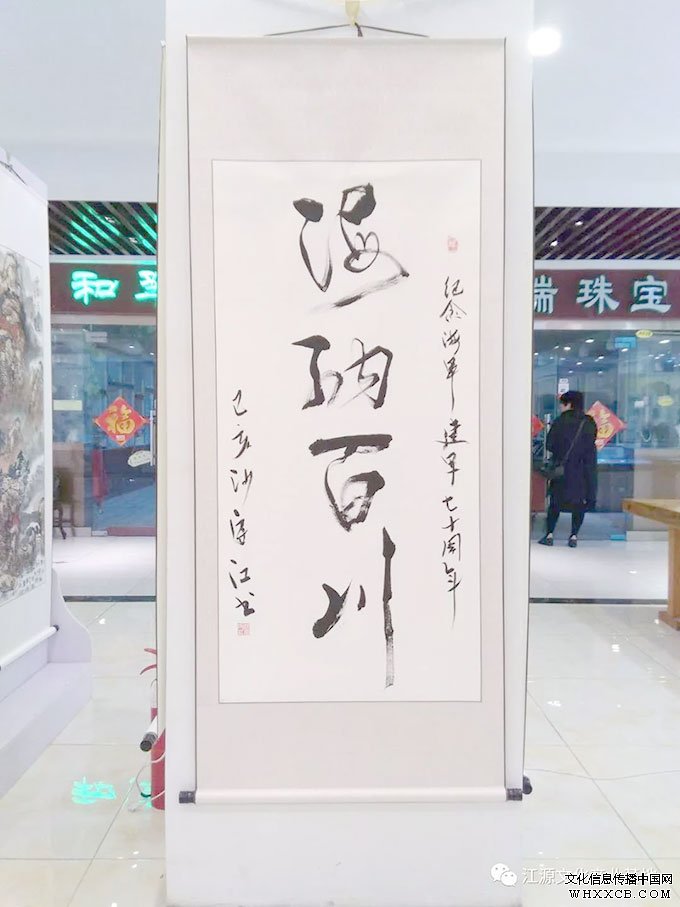 纪念海军建军七十周年
海纳百川
己亥沙守江书
和
瑞珠宝
福
福
文化信息传播中国网
WHXXCB.COM